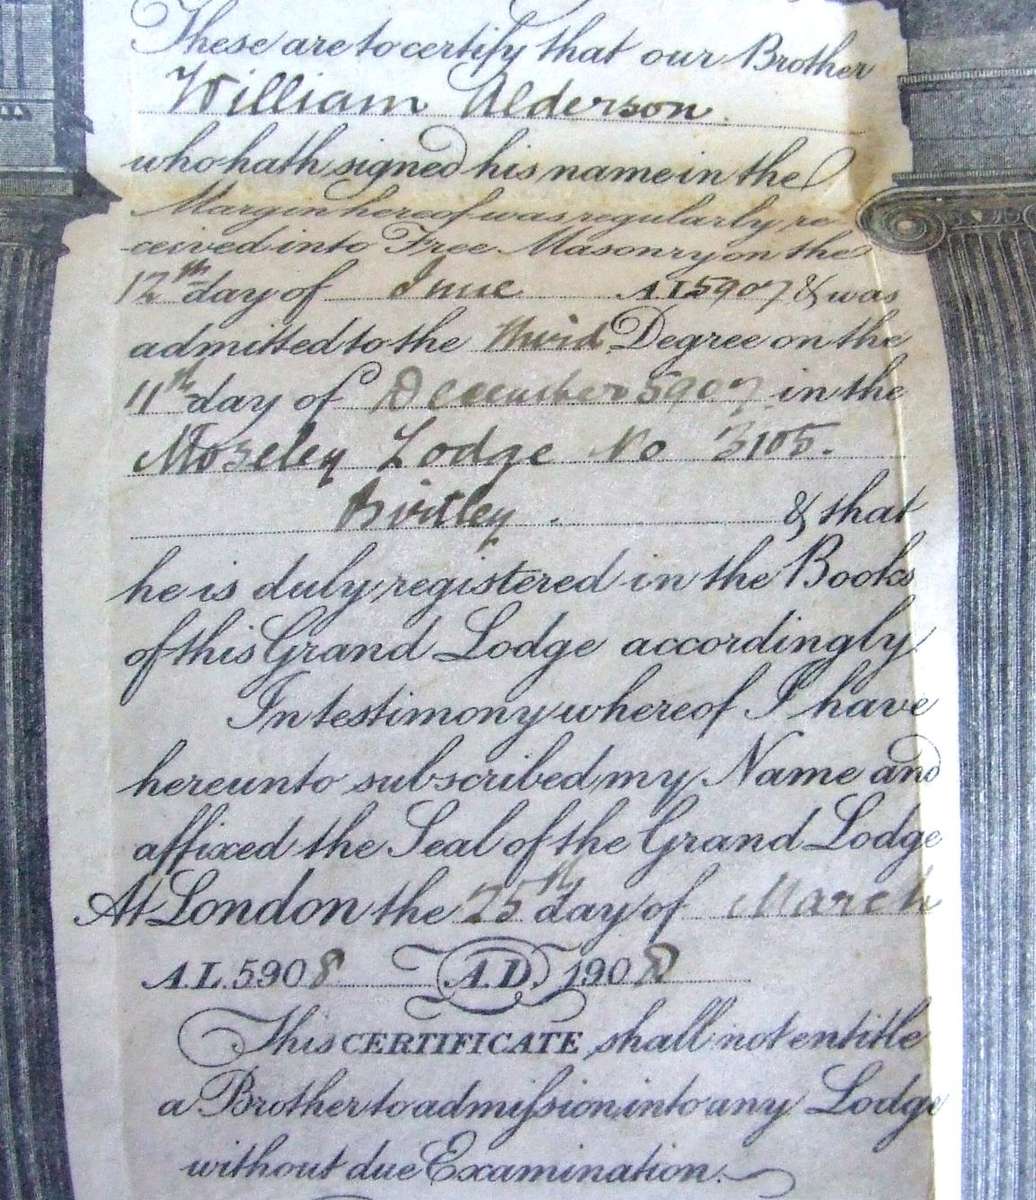 These are to certify that our Brother
William Alderson.
who hath signed his name in the
Margin hereof was regularly re-
ceived into Free Masonry on the
12th day of June A.L.5907 & was
admitted to the third Degree on the
11th day of December 5907 in the
Moseley Lodge No 3105.
Birtley. & that
he is duly registered in the Books
of this Grand Lodge accordingly.
In testimony whereof I have
hereunto subscribed my Name and
affixed the Seal of the Grand Lodge
At London the 25th day of March
A.L.5908 A.D. 1908
This CERTIFICATE shall not entitle
a Brother to admiſsion into any Lodge
without due Examination.